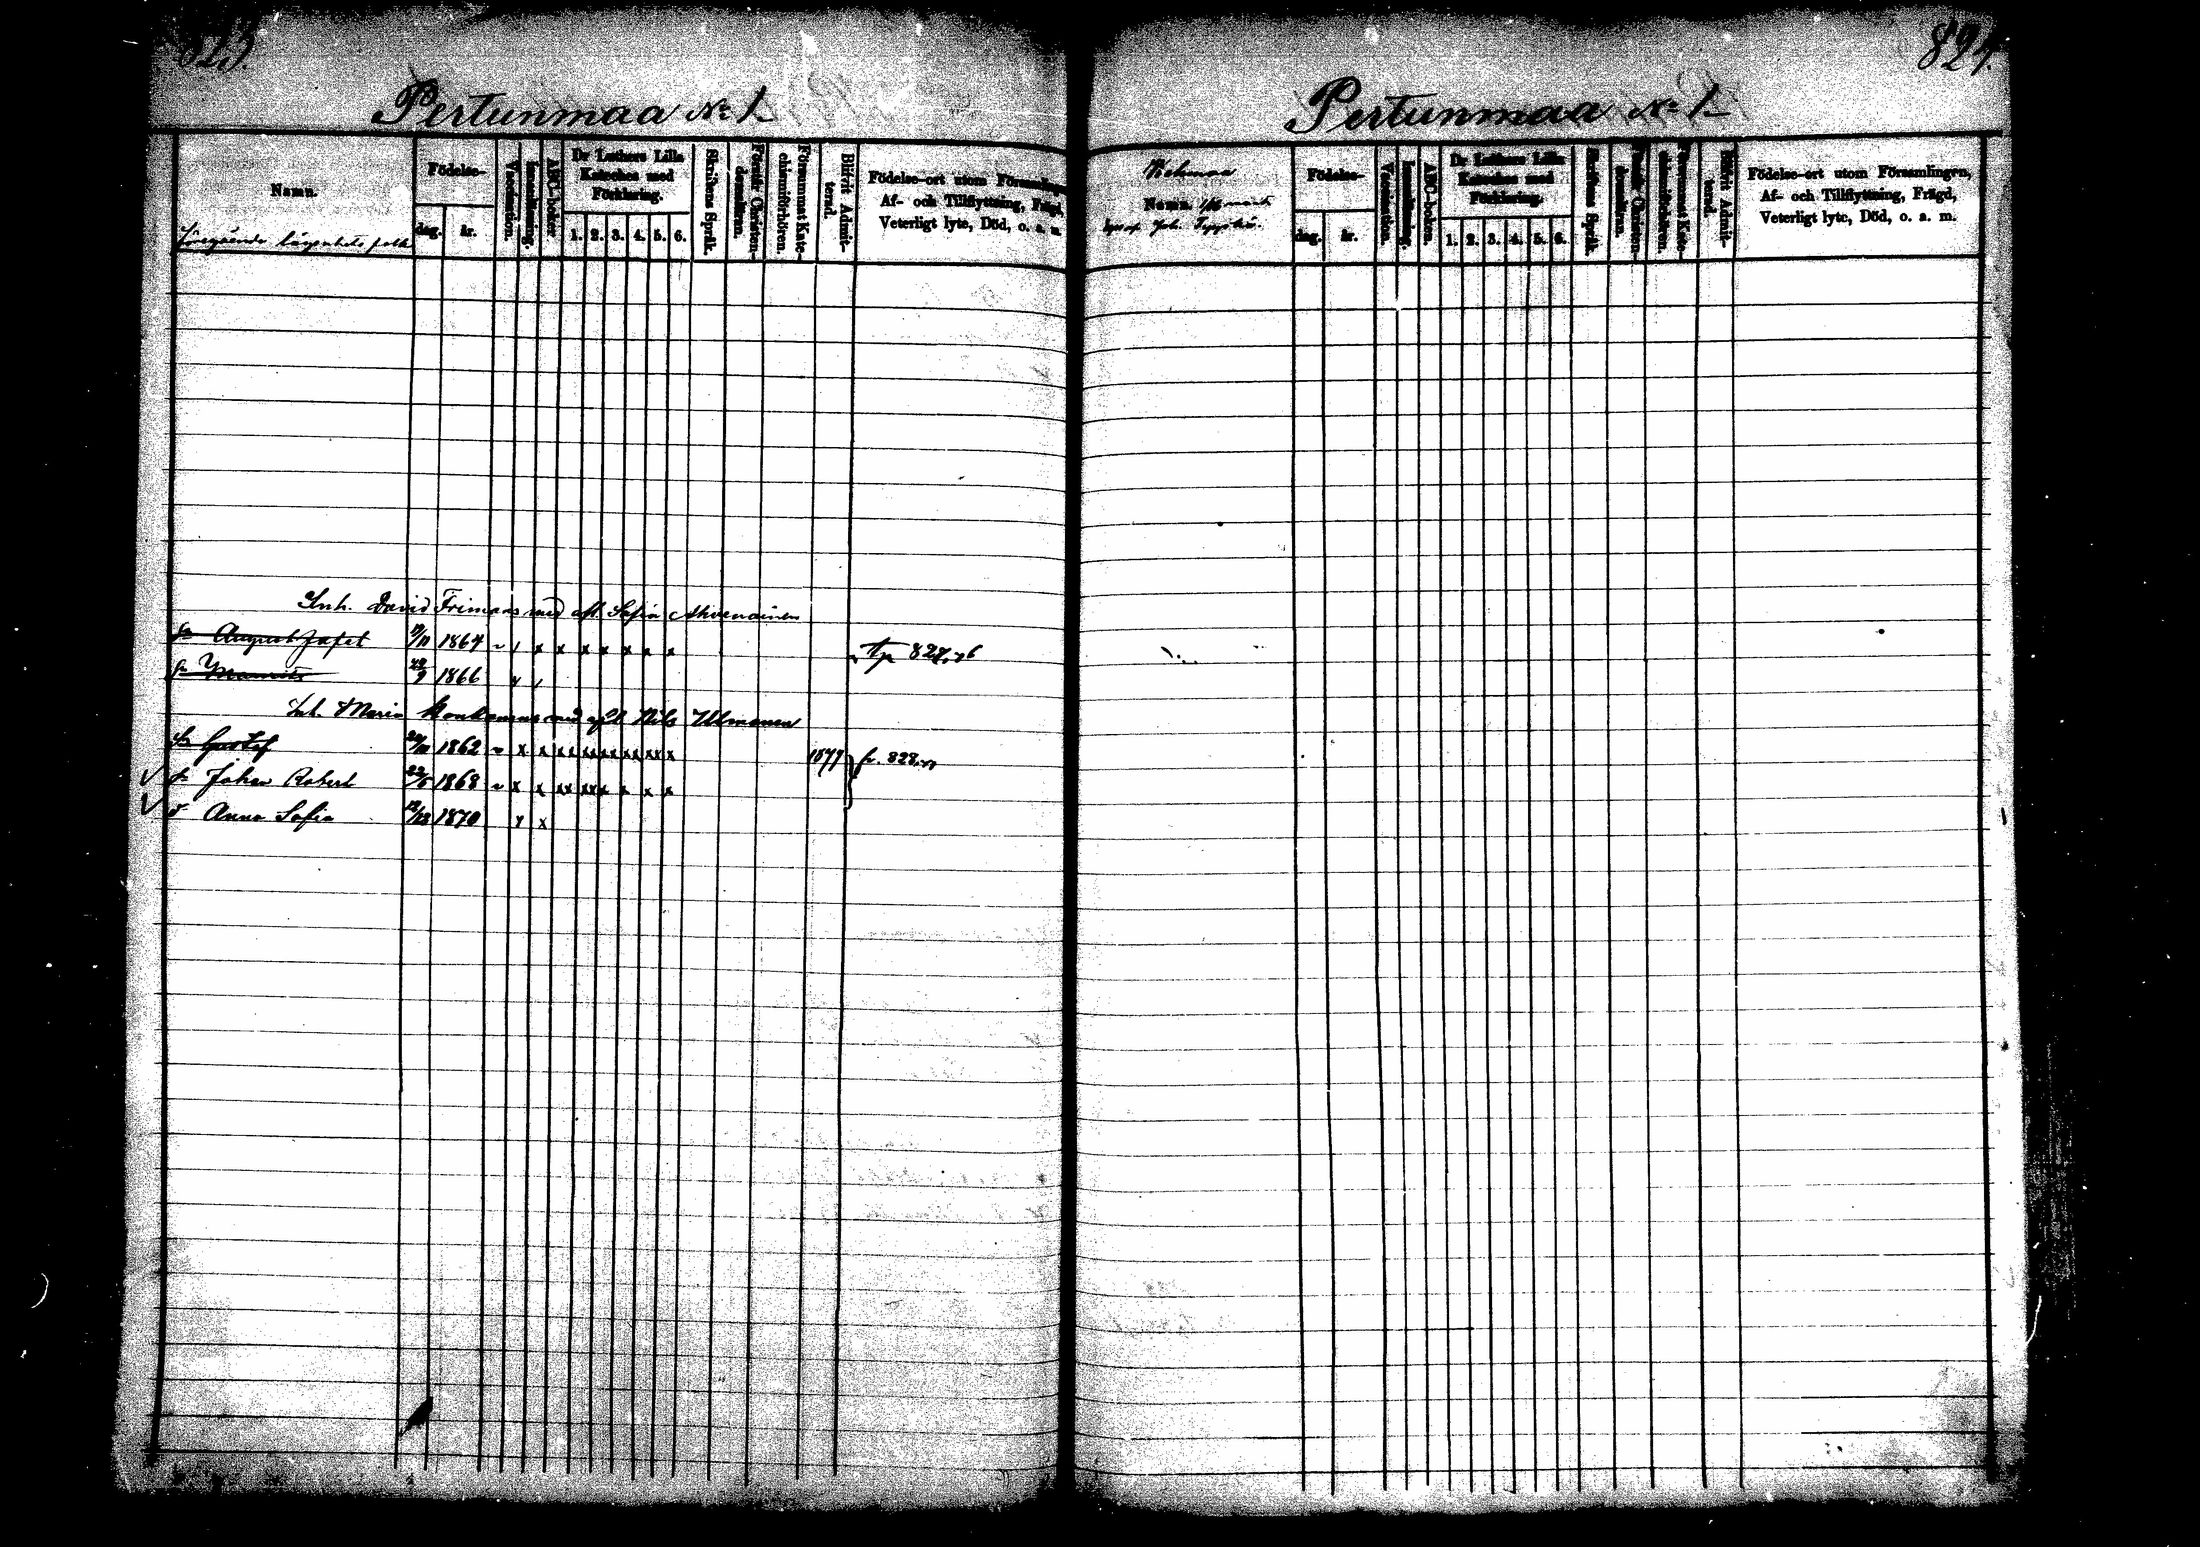 823.
Pertunmaa № 1
Namn.
Födelse-
dag. år.
Vaccination.
Innanläsning.
ABC-boken
Dr Luthers Lilla Kateches med Förklaring.
1. 2. 3. 4. 5. 6.
Skriftens Språk.
Förstår Christendomsläran.
Försummat Katechismiförhören.
Blifvit Admitterad.
Födelse-ort utom Församlingen,
Af- och Tillflyttning, Frägd,
Veterligt lyte, Död, o. a. m.
Inh. David Frimans med afl. Sofia Ahvenainen
sn August Jafet 1864 x x x x x x x x tp 827, 76
sn Mauritz 1866
Inh. Maria Konkanens med afl. Nils Ullmanen
sn Gustaf 1862 x x xx xx xx xx xx x 1877 fr. 828
√ sn Johan Robert 1868 x x xx xx x x x x
√ d Anna Sofia 1870 x x
824.
Pertunmaa № 1
Namn.
Födelse-
dag. år.
Vaccination.
Innanläsning.
ABC-boken.
Dr Luthers Lilla Kateches med Förklaring.
1. 2. 3. 4. 5. 6.
Skriftens Språk.
Förstår Christendomsläran.
Försummat Katechismiförhören.
Blifvit Admitterad.
Födelse-ort utom Församlingen,
Af- och Tillflyttning, Frägd,
Veterligt lyte, Död, o. a. m.